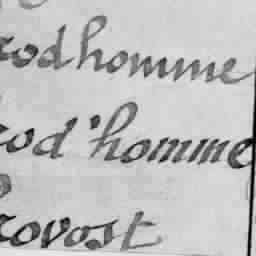 rodhomme
rod'homme
rovost